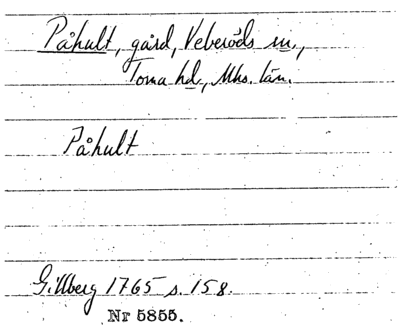 Påhult, gård, Veberöds sn.,
Torna hd, Mhs. län.
Påhult
Gillberg 1765 s. 158.
Nr 5855.